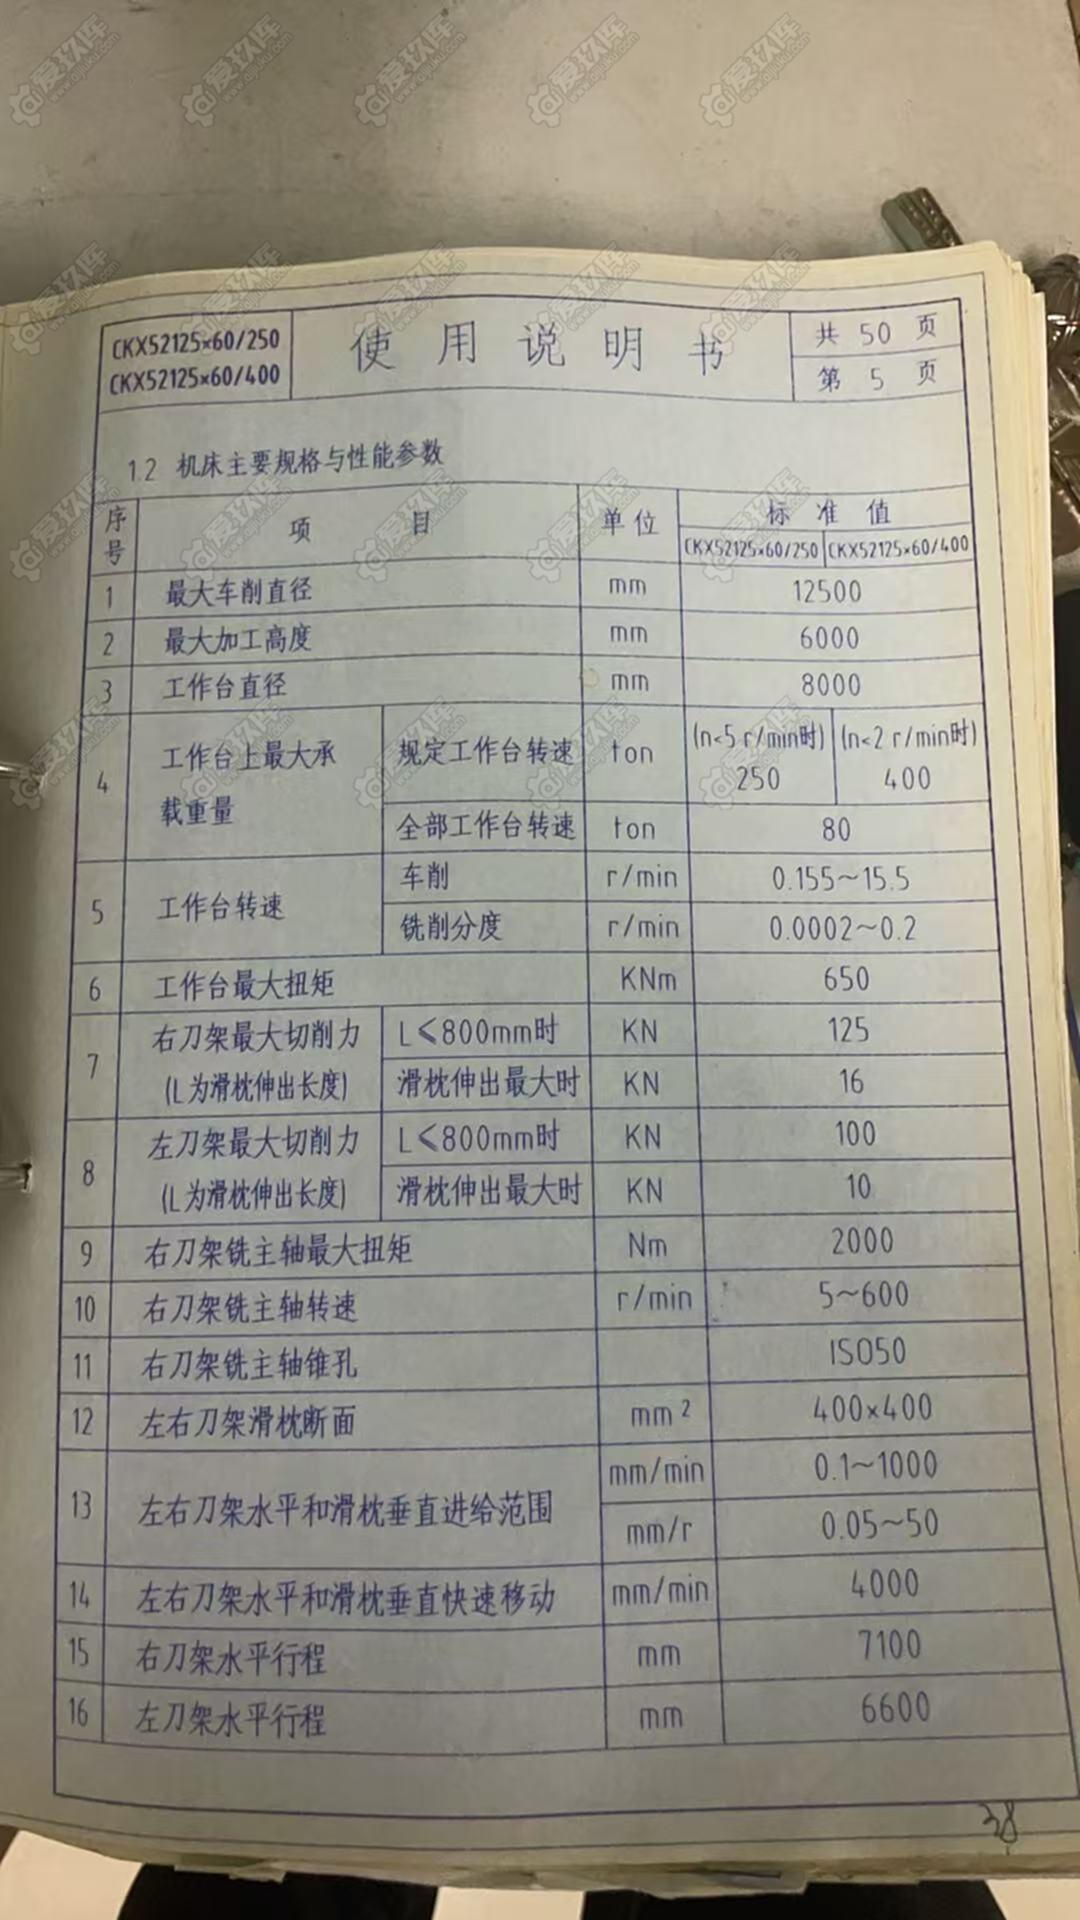 CKX52125×60/250
CKX52125×60/400
使用说明书
共 50 页
第 5 页
1.2 机床主要规格与性能参数
序号 项目 单位 标准值
CKX52125×60/250 CKX52125×60/400
1 最大车削直径 mm 12500
2 最大加工高度 mm 6000
3 工作台直径 mm 8000
4 工作台上最大承载重量 规定工作台转速 ton (n<5 r/min时) 250 (n<2 r/min时) 400
全部工作台转速 ton 80
5 工作台转速 车削 r/min 0.155~15.5
铣削分度 r/min 0.0002~0.2
6 工作台最大扭矩 KNm 650
7 右刀架最大切削力 (L为滑枕伸出长度) L≤800mm时 KN 125
滑枕伸出最大时 KN 16
8 左刀架最大切削力 (L为滑枕伸出长度) L≤800mm时 KN 100
滑枕伸出最大时 KN 10
9 右刀架铣主轴最大扭矩 Nm 2000
10 右刀架铣主轴转速 r/min 5~600
11 右刀架铣主轴锥孔 ISO50
12 左右刀架滑枕断面 mm² 400×400
13 左右刀架水平和滑枕垂直进给范围 mm/min 0.1~1000
mm/r 0.05~50
14 左右刀架水平和滑枕垂直快速移动 mm/min 4000
15 右刀架水平行程 mm 7100
16 左刀架水平行程 mm 6600
爱玖库
www.aijiuku.com